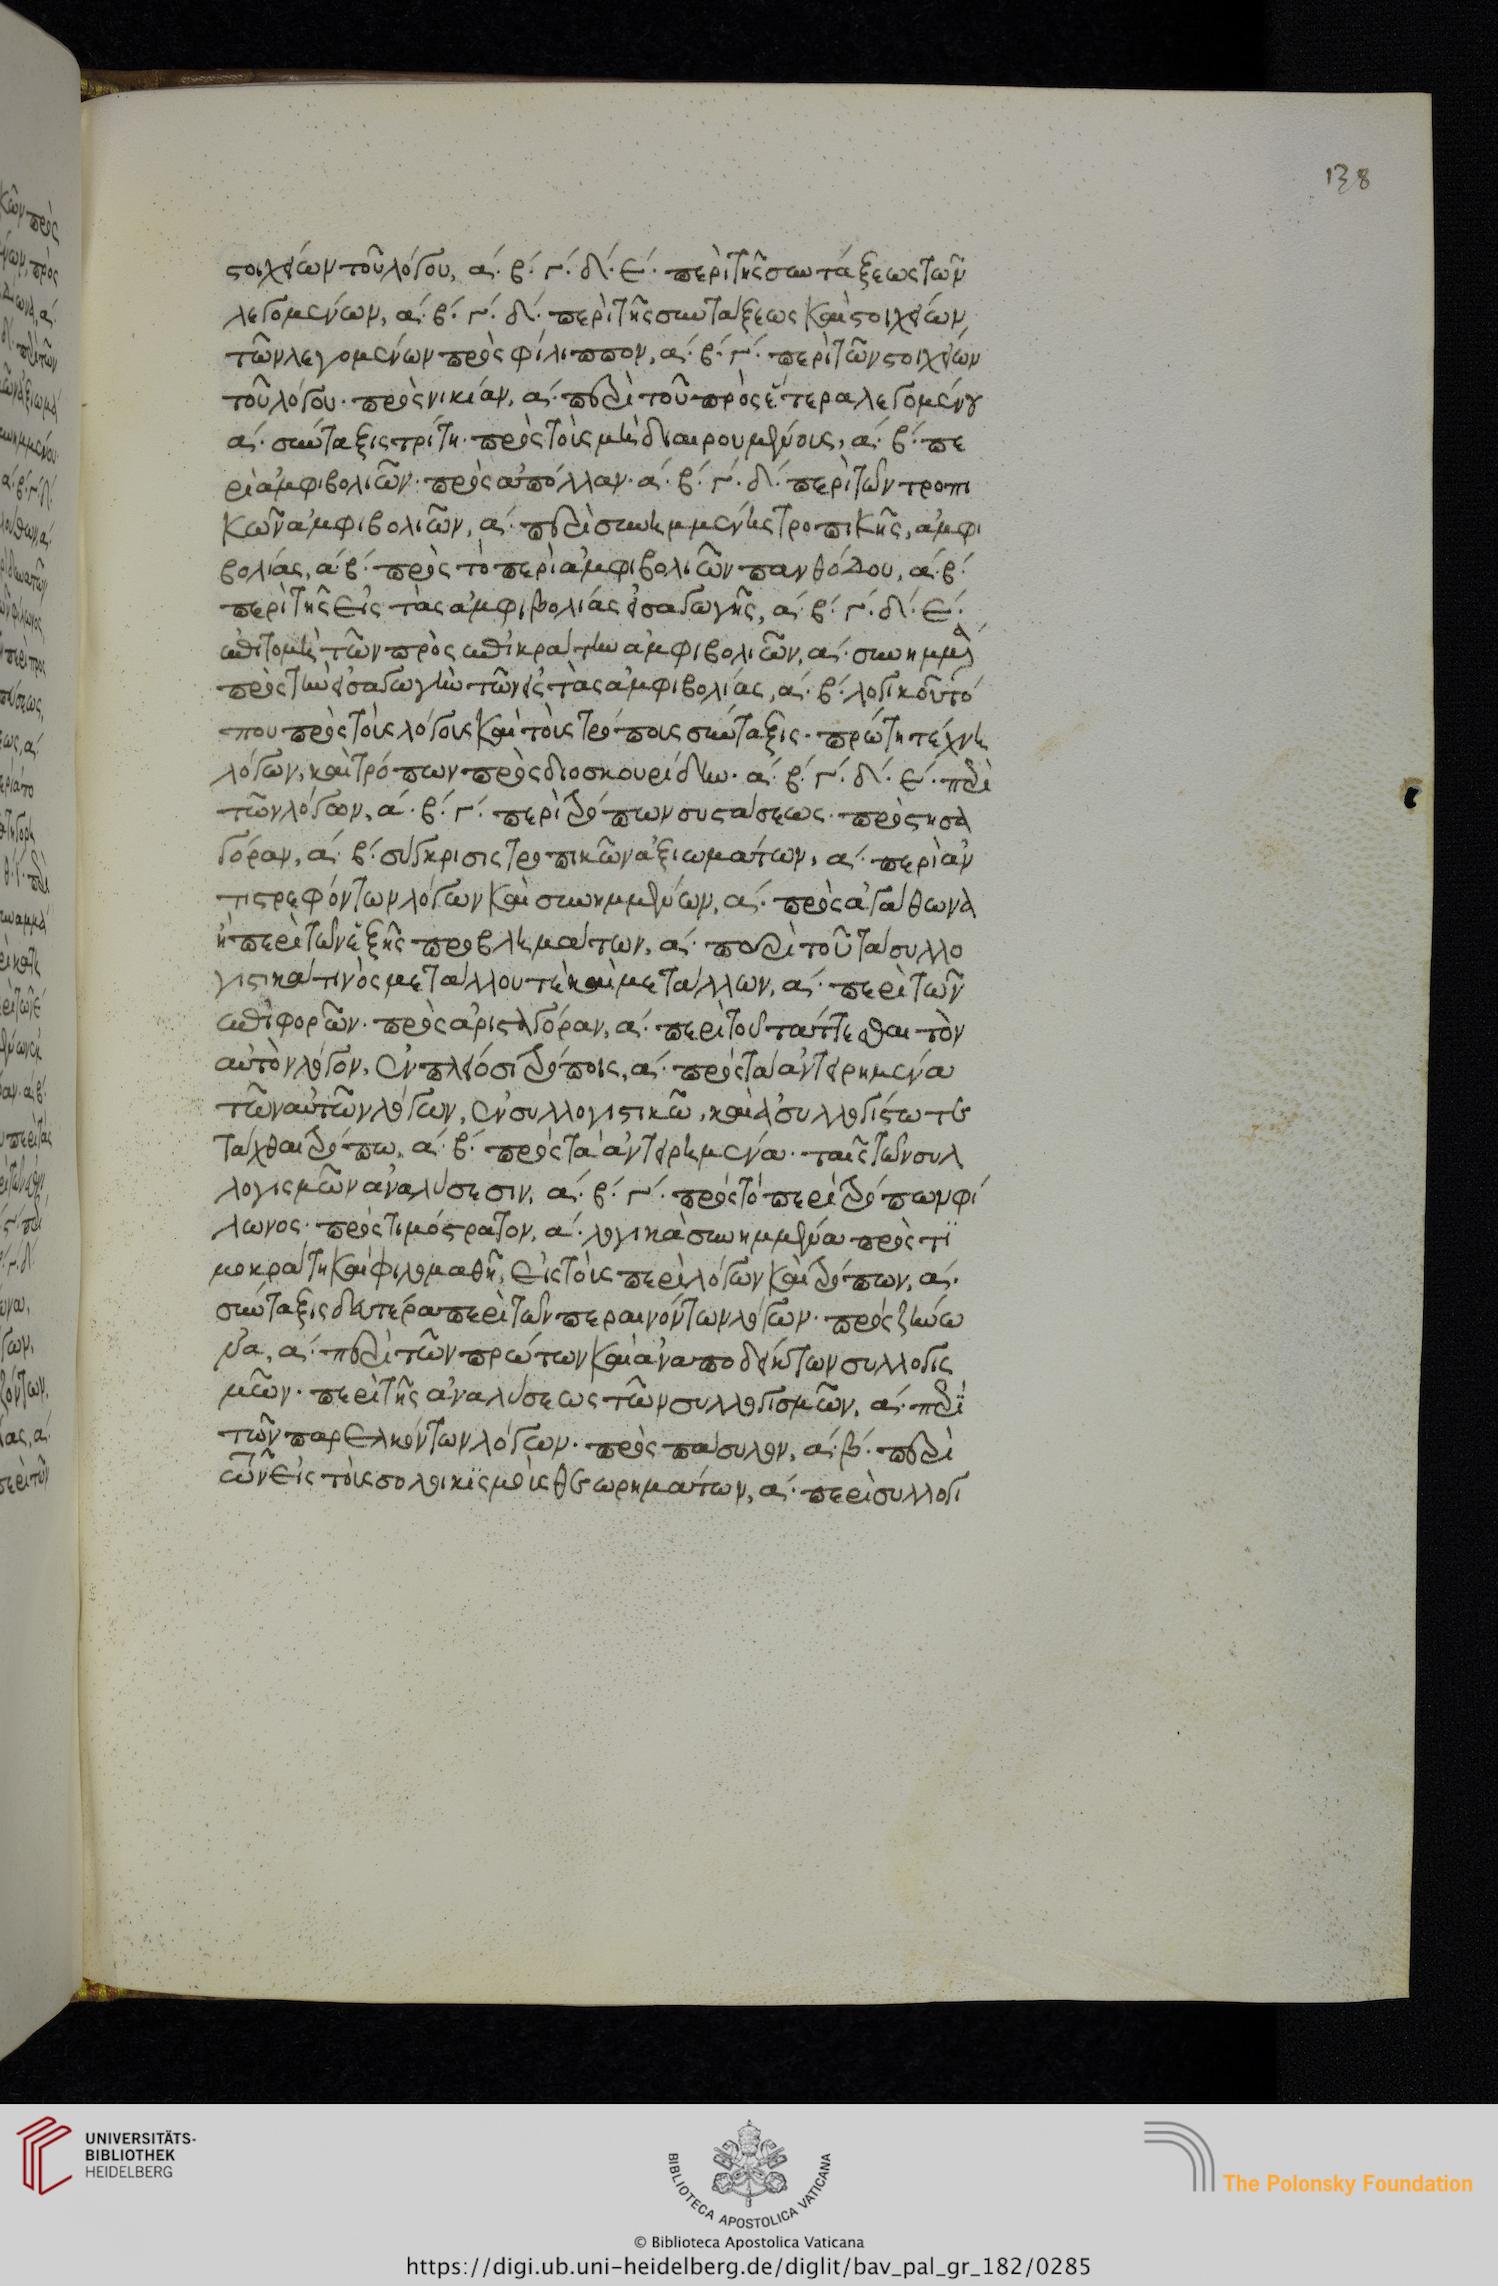 138
στοιχείων τοῦ λόγου, α´. β´. γ´. δ´. ε´. περὶ τῆς συντάξεως τῶν
λεγομένων, α´. β´. γ´. δ´. περὶ τῆς συντάξεως καὶ στοιχείων
τῶν λεγομένων πρὸς φίλιππον, α´. β´. γ´. περὶ τῶν στοιχείων
τοῦ λόγου. πρὸς νικίαν, α´. περὶ τοῦ πρὸς ἕτερα λεγομένου
α´. σύνταξις τρίτη. πρὸς τοὺς μὴ διαιρουμένους, α´. β´. πε
ρὶ ἀμφιβολιῶν. πρὸς ἀπόλλαν. α´. β´. γ´. δ´. περὶ τῶν τροπι
κῶν ἀμφιβολιῶν, α´. περὶ συνημμένης τροπικῆς, ἀμφι
βολίας, α´. β´. πρὸς τὸ περὶ ἀμφιβολιῶν πανθόδου, α´. β´.
περὶ τῆς εἰς τὰς ἀμφιβολίας εἰσαγωγῆς, α´. β´. γ´. δ´. ε´.
ἐπιτομὴ τῶν πρὸς ἐπικράτην ἀμφιβολιῶν, α´. συνημμα
πρὸς τὴν εἰσαγωγὴν τῶν εἰς τὰς ἀμφιβολίας, α´. β´. λογικοῦ τό
που πρὸς τοὺς λόγους καὶ τοὺς τρόπους σύνταξις. πρώτη τέχνη
λόγων, καὶ τρόπων πρὸς διοσκουρίδην. α´. β´. γ´. δ´. ε´. περὶ
τῶν λόγων, α´. β´. γ´. περὶ τρόπων συστάσεως. πρὸς στησα
γόραν, α´. β´. σύγκρισις τροπικῶν ἀξιωμάτων, α´. περὶ ἀν
τιστρεφόντων λόγων καὶ συνημμένων, α´. πρὸς ἀγάθωνα
ἢ περὶ τῶν ἑξῆς προβλημάτων, α´. περὶ τοῦ τὰ συλλο
γιστικά τινὸς μετ᾽ ἄλλου τὲ καὶ μετ᾽ ἄλλων, α´. περὶ τῶν
ἐπιφορῶν. πρὸς ἀρισταγόραν, α´. περὶ τοῦ τάττεσθαι τὸν
αὐτὸν λόγον, ἐν πλείοσι τρόποις, α´. πρὸς τὰ ἀντειρημένα
τῶν αὐτῶν λόγων, ἐν συλλογιστικῶ, καὶ ἀσυλλογίστω τε
τάχθαι τρόπω, α´. β´. πρὸς τὰ ἀντειρημένα. ταῖς τῶν συλ
λογισμῶν ἀναλύσεσιν, α´. β´. γ´. πρὸς τὸ περὶ τρόπων φί
λωνος. πρὸς τιμόστρατον, α´. λογικὰ συνημμένα πρὸς τι
μοκράτη καὶ φιλομαθῆ, εἰς τοὺς περὶ λόγων καὶ τρόπων, α´.
σύνταξις δευτέρα περὶ τῶν περαινόντων λόγων. πρὸς ζήνω
να, α´. περὶ τῶν πρώτων καὶ ἀναποδείκτων συλλογισ
μῶν. περὶ τῆς ἀναλύσεως τῶν συλλογισμῶν, α´. περὶ
τῶν παρελκόντων λόγων. πρὸς πάσυλον, α´. β´. περὶ
τῶν εἰς τοὺς σολοικισμοὺς θεωρημάτων, α´. περὶ συλλογι
UNIVERSITÄTS-
BIBLIOTHEK
HEIDELBERG
BIBLIOTECA APOSTOLICA VATICANA
The Polonsky Foundation
© Biblioteca Apostolica Vaticana
https://digi.ub.uni-heidelberg.de/diglit/bav_pal_gr_182/0285